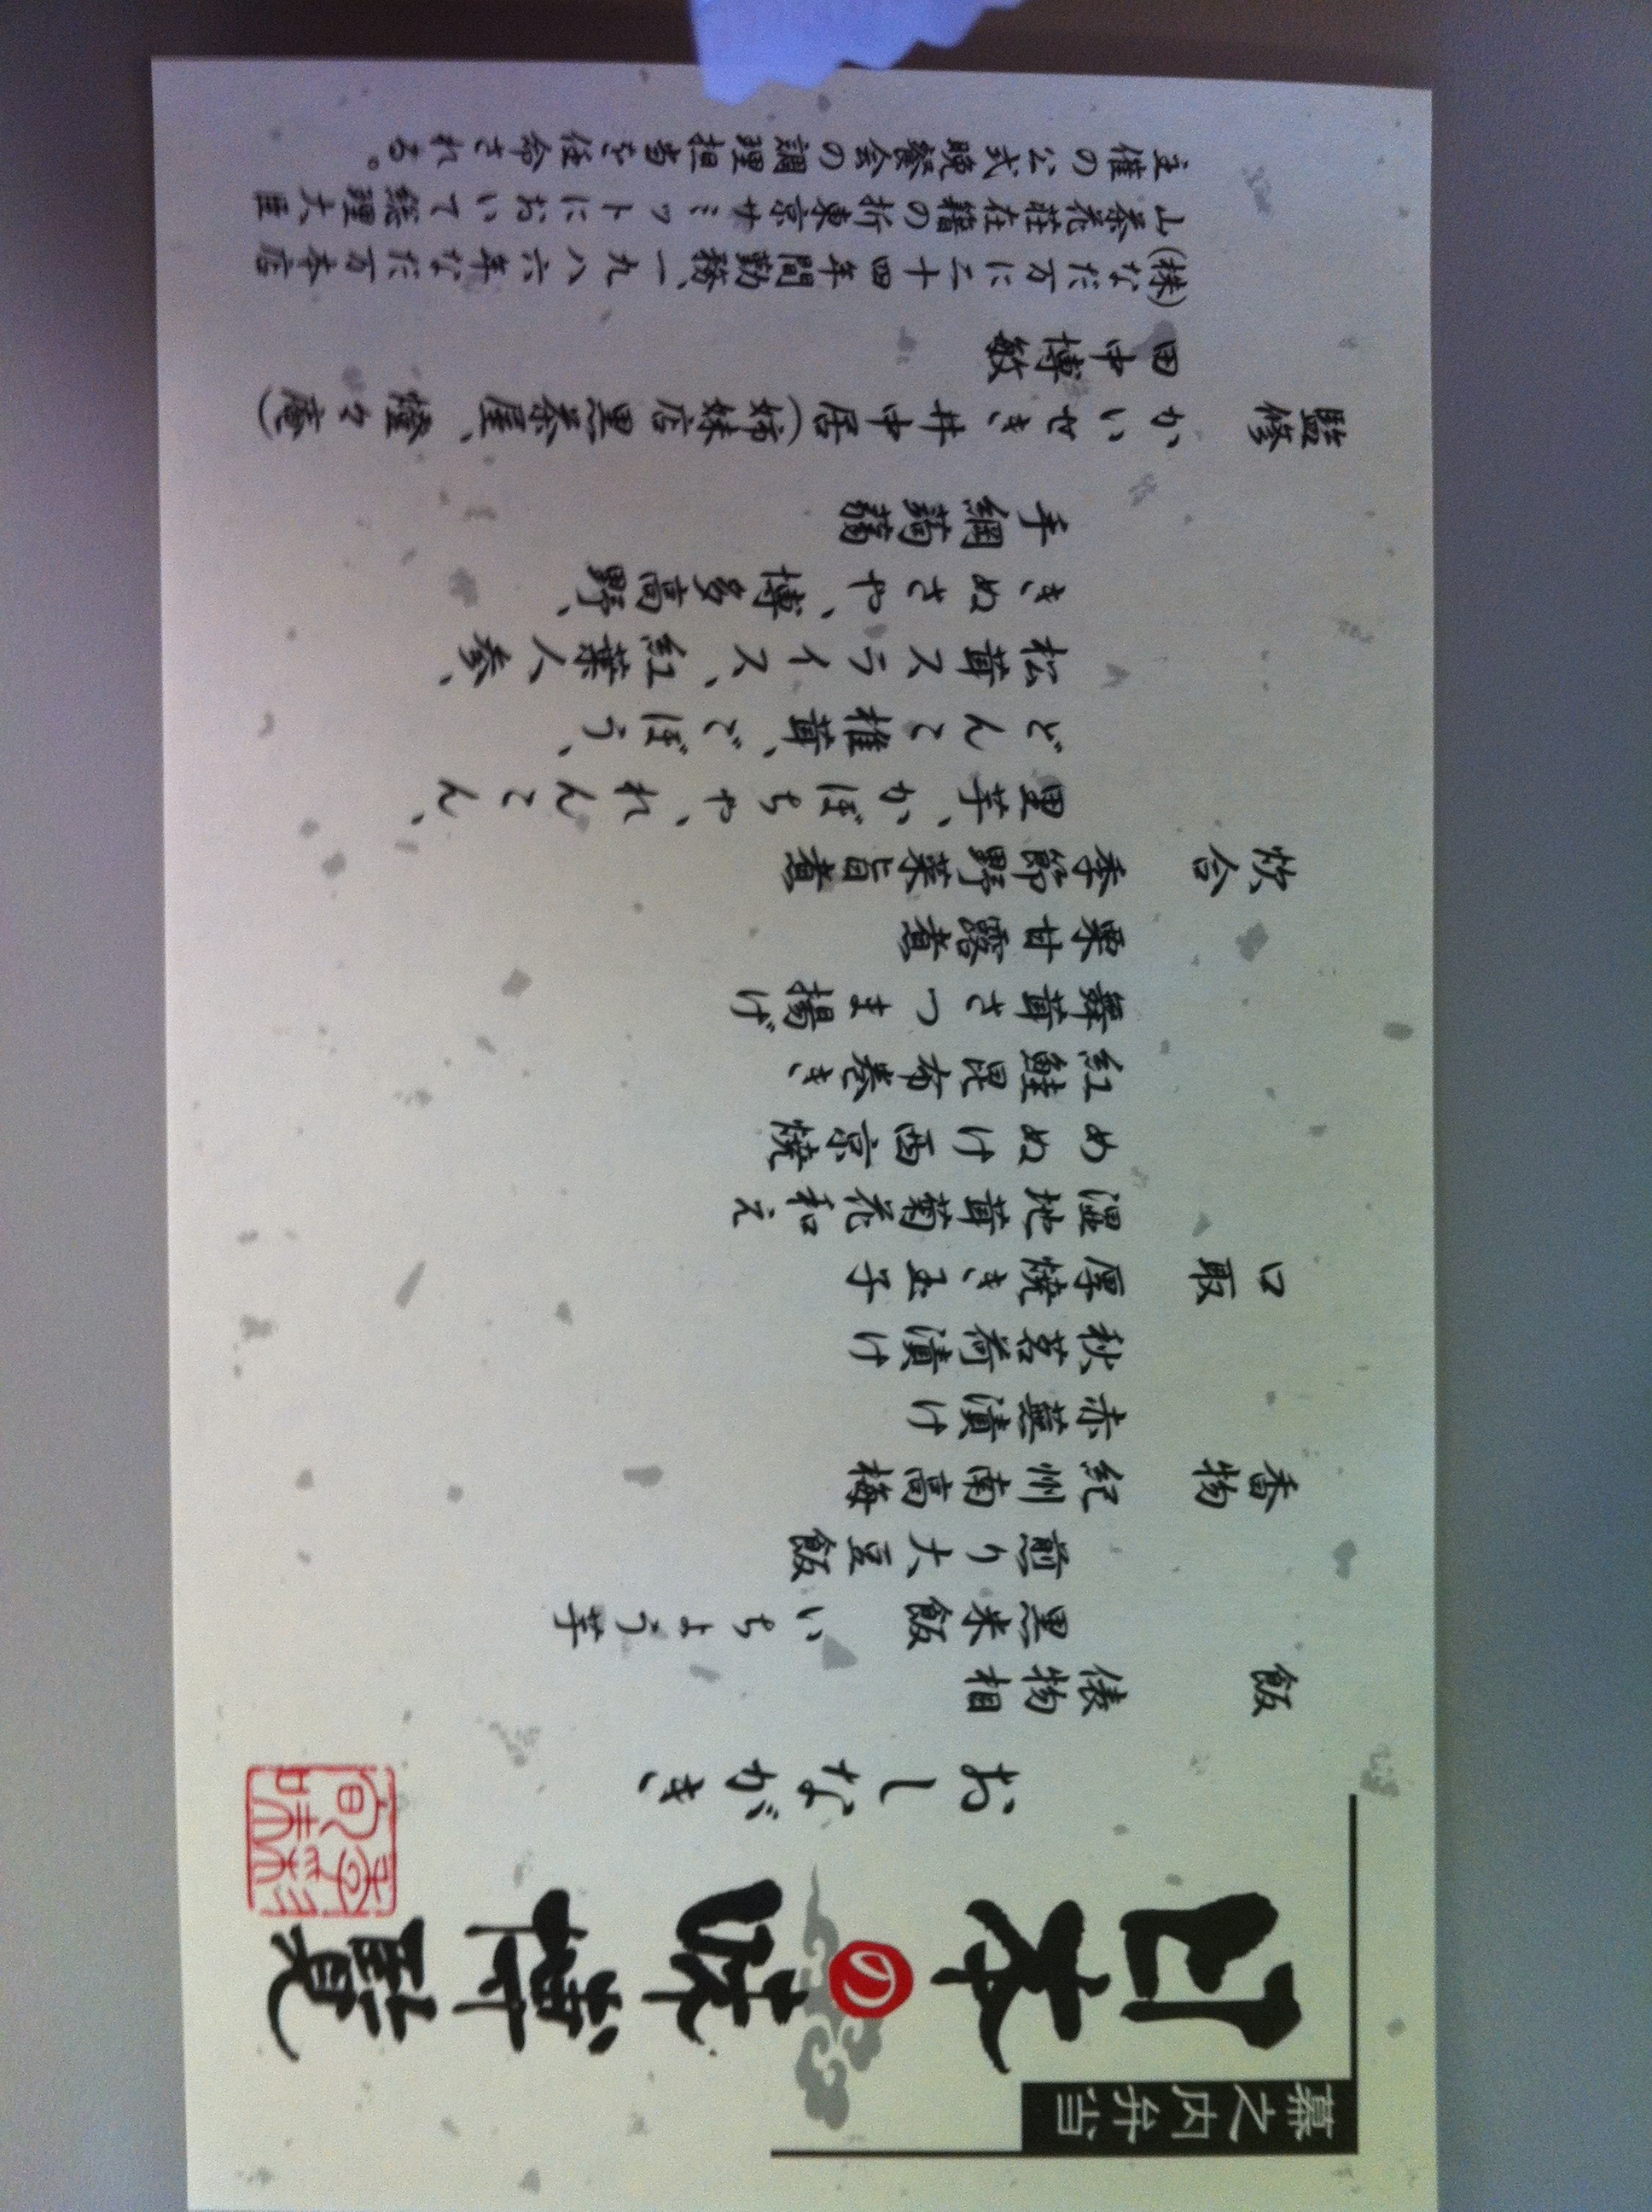 幕之内弁当
日本の味博覧
おしながき
飯 俵物相
黒米飯 いちょう芋
煎り大豆飯
香物 紀州南高梅
赤蕪漬け
秋茗荷漬け
口取 厚焼き玉子
湿地茸菊花和え
めぬけ西京焼
紅鮭昆布巻き
舞茸さつま揚げ
栗甘露煮
炊合 季節野菜旨煮
里芋、かぼちゃ、れんこん、
どんこ椎茸、ごぼう、
松茸スライス、紅葉人参、
きぬさや、博多高野、
手綱蒟蒻
監修 かいせき井中居(姉妹店黒茶屋、燈々庵)
田中博敏
(株)なだ万に二十四年間勤務、一九八六年なだ万本店
山茶花荘在籍の折東京サミットにおいて総理大臣
主催の公式晩餐会の調理担当を任命される。